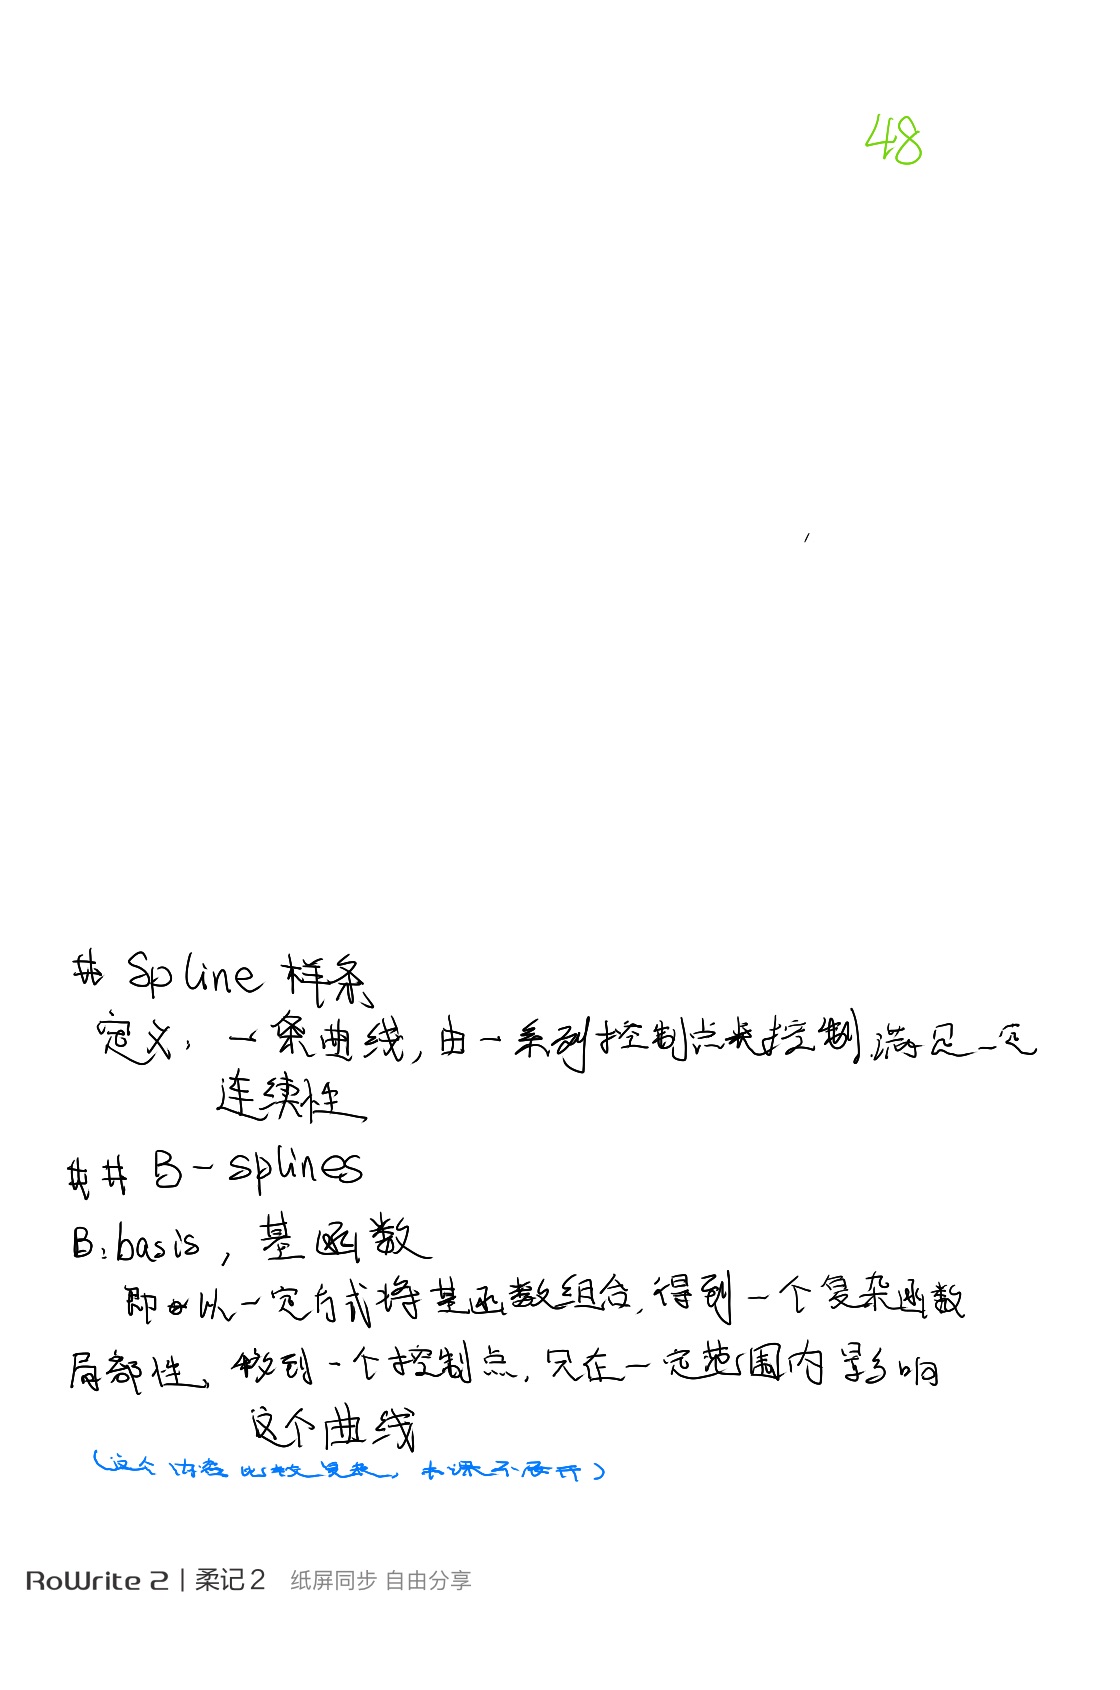 48
# Spline 样条
定义: 一条曲线, 由一系列控制点来控制, 满足一定
连续性
## B-splines
B: basis, 基函数
即以一定方式将基函数组合, 得到一个复杂函数
局部性, 移到一个控制点, 只在一定范围内影响
这个曲线
(这个内容比较复杂, 本课不展开)
RoWrite 2 | 柔记2 纸屏同步 自由分享